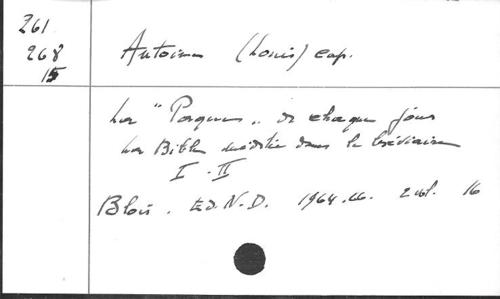 261
268
15
Antoine (Louis) cap.
La "Pâque" de chaque jour
La Bible méditée dans le bréviaire
I - II
Blois. Ed. N.-D. 1964-66. 2 vol. 16